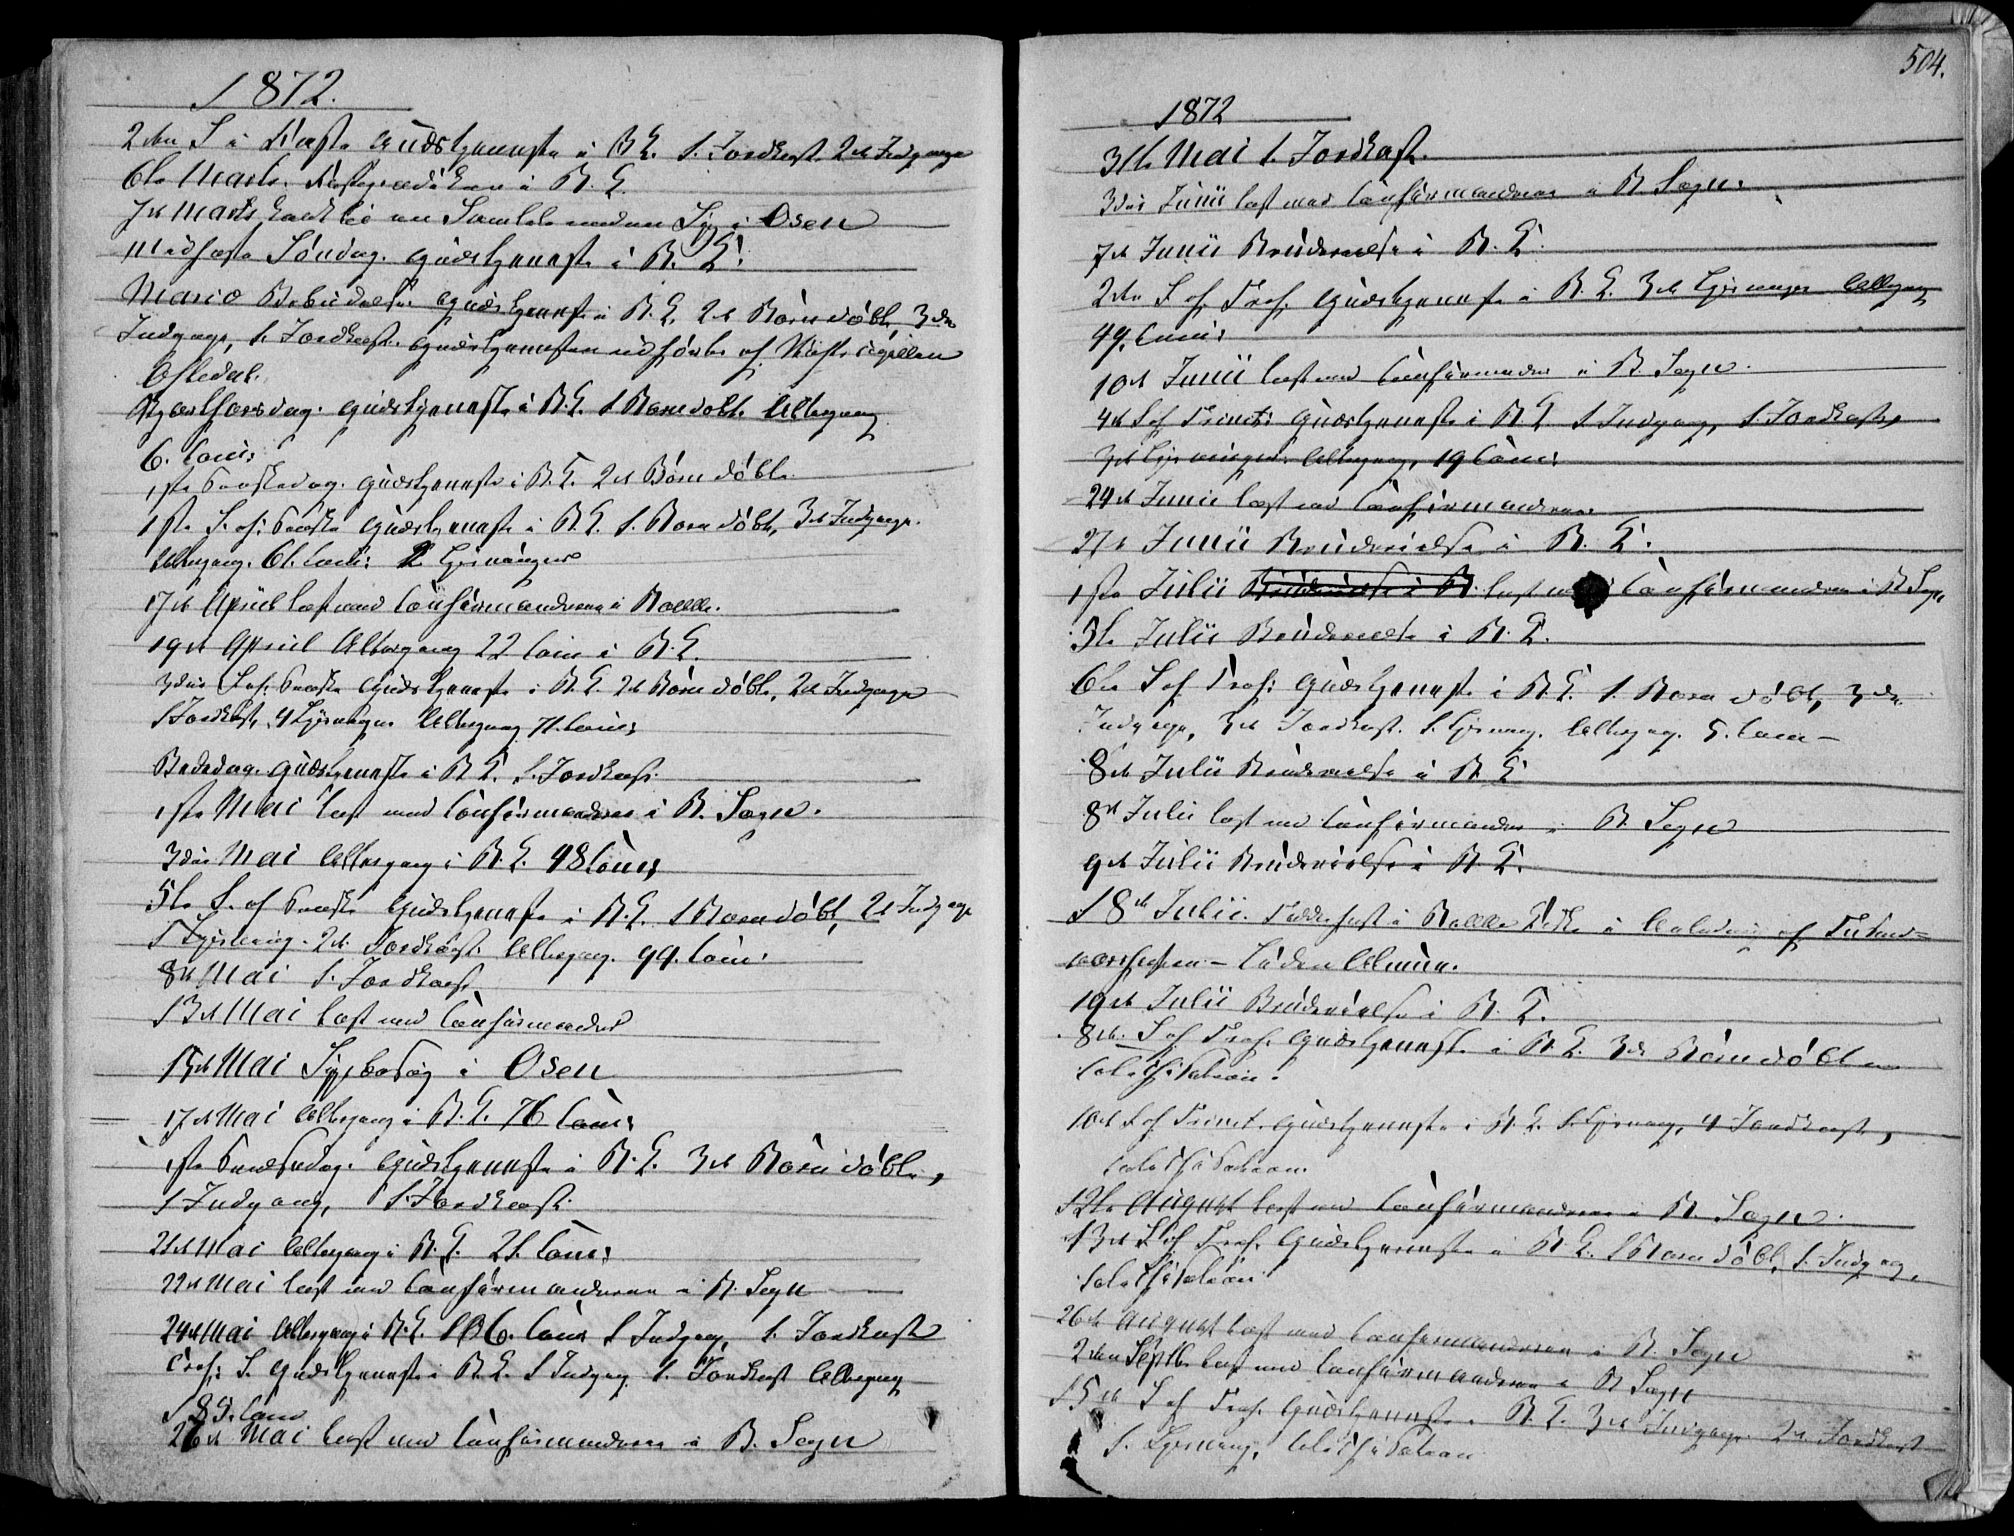 1872.
2den S i Faste Gudstjeneste i B. K. 1. Jordkast. 2de Indgange
6te Marts. Fasteprædiken i B. K.
7de Marts holdt en Samtale med en Syg i Osen
Midfaste Søndag. Gudstjeneste i B. K.
Mariæ Bebudelse. Gudstjeneste i B. K. 2de Børn døbte, 3de
Indgange, 1. Jordkast. Gudstjenesten udførtes af
Ofstedal.
Skjærthorsdag. Gudstjeneste i B. K. 1 Barn døbt. Altergang
6. Com:
1ste Paaskedag. Gudstjeneste i B. K. 2de Børn døbte.
1ste S. ef: Paaske Gudstjeneste i B. K. 1. Barn døbt, 3de Indgange.
Altergang. 61. Com: 2 Lysninger
17de April læst med Confirmanderne i
19de April Altergang 22 Com i B. K.
3die S. ef: Paaske Gudstjeneste i B. K. 2de Børn døbte, 2de Indgange
1 Jordkast, 4 Lysninger Altergang 71. Com:
Bededag. Gudstjeneste i B. K. 1. Jordkast.
1ste Mai læst med Confirmanderne i B. Sogn.
3die Mai Altergang i B. K. 48 Com:
5te S. ef Paaske Gudstjeneste i B. K. 1 Barn døbt, 2de Indgange
1 Lysning. 2de Jordkast. Altergang. 99. Com:
8de Mai 1. Jordkast
13de Mai læst med Confirmander
15de Mai Sygebesøg i Osen
17de Mai Altergang i B. K. 76 Com:
1ste Pindsedag. Gudstjeneste i B. K. 3de Børn døbte,
1 Indgang, 1. Jordkast.
21de Mai Altergang i B. K. 21. Com:
22de Mai læst med Confirmanderne i B. Sogn
24de Mai Altergang i B. K. 106. Com 1 Indgang, 1. Jordkast
Tref: S. Gudstjeneste i B. K. 1 Indgang. 1. Jordkast Altergang
185. Com
26de Mai læst med Confirmanderne i B. Sogn
504.
1872
31te Mai 1. Jordkast.
3die Junii læst med Confirmanderne i B. Sogn.
7de Junii Brudevielse i B. K.
2den S. ef. Tref. Gudstjeneste i B. K. 3de Lysninger Altergang
49. Com:
10de Junii læst med Confirmander i B. Sogn.
4de S ef Trinit: Gudstjeneste i B. K. 1 Indgang, 1. Jordkast,
3de Lysninger. Altergang, 19 Com:
24de Junii læst med Confirmanderne
27de Junii Brudevielse i B. K.
1ste Julii Brudevielse i B læst med Confirmanderne i B. Sogn
5te Julii Brudevielse i B. K.
6te S ef Tref: Gudstjeneste i B. K. 1. Barn døbt, 3de
Indgange, 3de Jordkast. 1. Lysning. Altergang. 5. Com –
8de Julii Brudevielse i B. K.
8de Julii læst med Confirmander i B. Sogn
9de Julii Brudevielse i B. K.
18de Julii. i Kirke i Anledning af Tusend-
aarsfesten –
19de Julii Brudevielse i B. K.
8de S ef Tref. Gudstjeneste i B. K. 3de Børn døbte
Catechisation.
10de S ef Trinit. Gudstjeneste i B. K. 1. Lysning, 4 Jordkast,
Catechisation.
12te August læst med Confirmanderne i B. Sogn.
13de S ef Tref. Gudstjeneste i B. K. 1 Barn døbt, 1. Indgang,
Catechisation.
26de August læst med Confirmanderne i B. Sogn
2den Septb. læst med Confirmanderne i B Sogn
15de S ef Tref. Gudstjeneste i B. K. 3de Indgange 2de Jordkast
1. Lysning, Catechisation